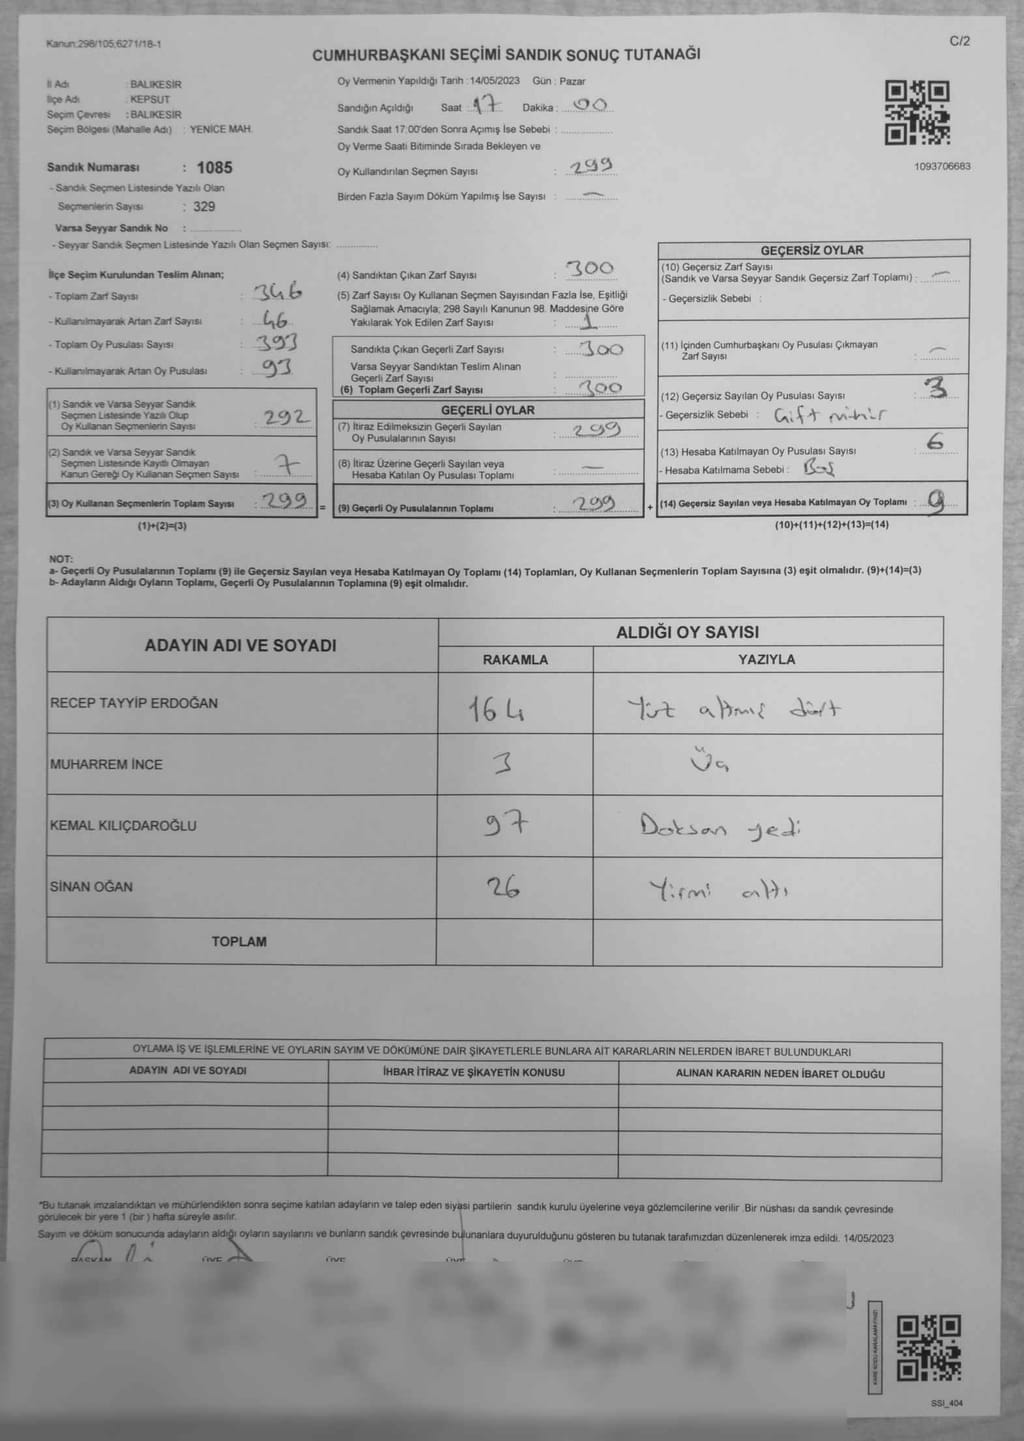 Kanun:298/105;6271/18-1
C/2
CUMHURBAŞKANI SEÇİMİ SANDIK SONUÇ TUTANAĞI
İl Adı : BALIKESİR
İlçe Adı : KEPSUT
Seçim Çevresi : BALIKESİR
Seçim Bölgesi (Mahalle Adı) : YENİCE MAH.
Sandık Numarası : 1085
- Sandık Seçmen Listesinde Yazılı Olan
Seçmenlerin Sayısı : 329
Varsa Seyyar Sandık No :
- Seyyar Sandık Seçmen Listesinde Yazılı Olan Seçmen Sayısı:
Oy Vermenin Yapıldığı Tarih : 14/05/2023 Gün : Pazar
Sandığın Açıldığı Saat : 17 Dakika : 00
Sandık Saat 17:00'den Sonra Açımış İse Sebebi :
Oy Verme Saati Bitiminde Sırada Bekleyen ve
Oy Kullandırılan Seçmen Sayısı : 299
Birden Fazla Sayım Döküm Yapılmış İse Sayısı : —
1093706683
İlçe Seçim Kurulundan Teslim Alınan;
- Toplam Zarf Sayısı : 346
- Kullanılmayarak Artan Zarf Sayısı : 46
- Toplam Oy Pusulası Sayısı : 393
- Kullanılmayarak Artan Oy Pusulası : 93
(1) Sandık ve Varsa Seyyar Sandık
Seçmen Listesinde Yazılı Olup
Oy Kullanan Seçmenlerin Sayısı : 292
(2) Sandık ve Varsa Seyyar Sandık
Seçmen Listesinde Kayıtlı Olmayan
Kanun Gereği Oy Kullanan Seçmen Sayısı : 7
(3) Oy Kullanan Seçmenlerin Toplam Sayısı : 299 =
(1)+(2)=(3)
(4) Sandıktan Çıkan Zarf Sayısı : 300
(5) Zarf Sayısı Oy Kullanan Seçmen Sayısından Fazla İse, Eşitliği
Sağlamak Amacıyla, 298 Sayılı Kanunun 98. Maddesine Göre
Yakılarak Yok Edilen Zarf Sayısı : 1
Sandıkta Çıkan Geçerli Zarf Sayısı : 300
Varsa Seyyar Sandıktan Teslim Alınan
Geçerli Zarf Sayısı :
(6) Toplam Geçerli Zarf Sayısı : 300
GEÇERLİ OYLAR
(7) İtiraz Edilmeksizin Geçerli Sayılan
Oy Pusulalarının Sayısı : 299
(8) İtiraz Üzerine Geçerli Sayılan veya
Hesaba Katılan Oy Pusulası Toplamı : —
(9) Geçerli Oy Pusulalarının Toplamı : 299 +
GEÇERSİZ OYLAR
(10) Geçersiz Zarf Sayısı
(Sandık ve Varsa Seyyar Sandık Geçersiz Zarf Toplamı) : —
- Geçersizlik Sebebi :
(11) İçinden Cumhurbaşkanı Oy Pusulası Çıkmayan
Zarf Sayısı : —
(12) Geçersiz Sayılan Oy Pusulası Sayısı : 3
- Geçersizlik Sebebi : Çift mühür
(13) Hesaba Katılmayan Oy Pusulası Sayısı : 6
- Hesaba Katılmama Sebebi : Boş
(14) Geçersiz Sayılan veya Hesaba Katılmayan Oy Toplamı : 9
(10)+(11)+(12)+(13)=(14)
NOT:
a- Geçerli Oy Pusulalarının Toplamı (9) ile Geçersiz Sayılan veya Hesaba Katılmayan Oy Toplamı (14) Toplamları, Oy Kullanan Seçmenlerin Toplam Sayısına (3) eşit olmalıdır. (9)+(14)=(3)
b- Adayların Aldığı Oyların Toplamı, Geçerli Oy Pusulalarının Toplamına (9) eşit olmalıdır.
ADAYIN ADI VE SOYADI
ALDIĞI OY SAYISI
RAKAMLA YAZIYLA
RECEP TAYYİP ERDOĞAN 164 Yüz altmış dört
MUHARREM İNCE 3 Üç
KEMAL KILIÇDAROĞLU 97 Doksan yedi
SİNAN OĞAN 26 Yirmi altı
TOPLAM
OYLAMA İŞ VE İŞLEMLERİNE VE OYLARIN SAYIM VE DÖKÜMÜNE DAİR ŞİKAYETLERLE BUNLARA AİT KARARLARIN NELERDEN İBARET BULUNDUKLARI
ADAYIN ADI VE SOYADI İHBAR İTİRAZ VE ŞİKAYETİN KONUSU ALINAN KARARIN NEDEN İBARET OLDUĞU
*Bu tutanak imzalandıktan ve mühürlendikten sonra seçime katılan adayların ve talep eden siyasi partilerin sandık kurulu üyelerine veya gözlemcilerine verilir .Bir nüshası da sandık çevresinde
görülecek bir yere 1 (bir ) hafta süreyle asılır.
Sayım ve döküm sonucunda adayların aldığı oyların sayılarını ve bunların sandık çevresinde bulunanlara duyurulduğunu gösteren bu tutanak tarafımızdan düzenlenerek imza edildi. 14/05/2023
BAŞKAN ÜYE ÜYE ÜYE
SSI_404